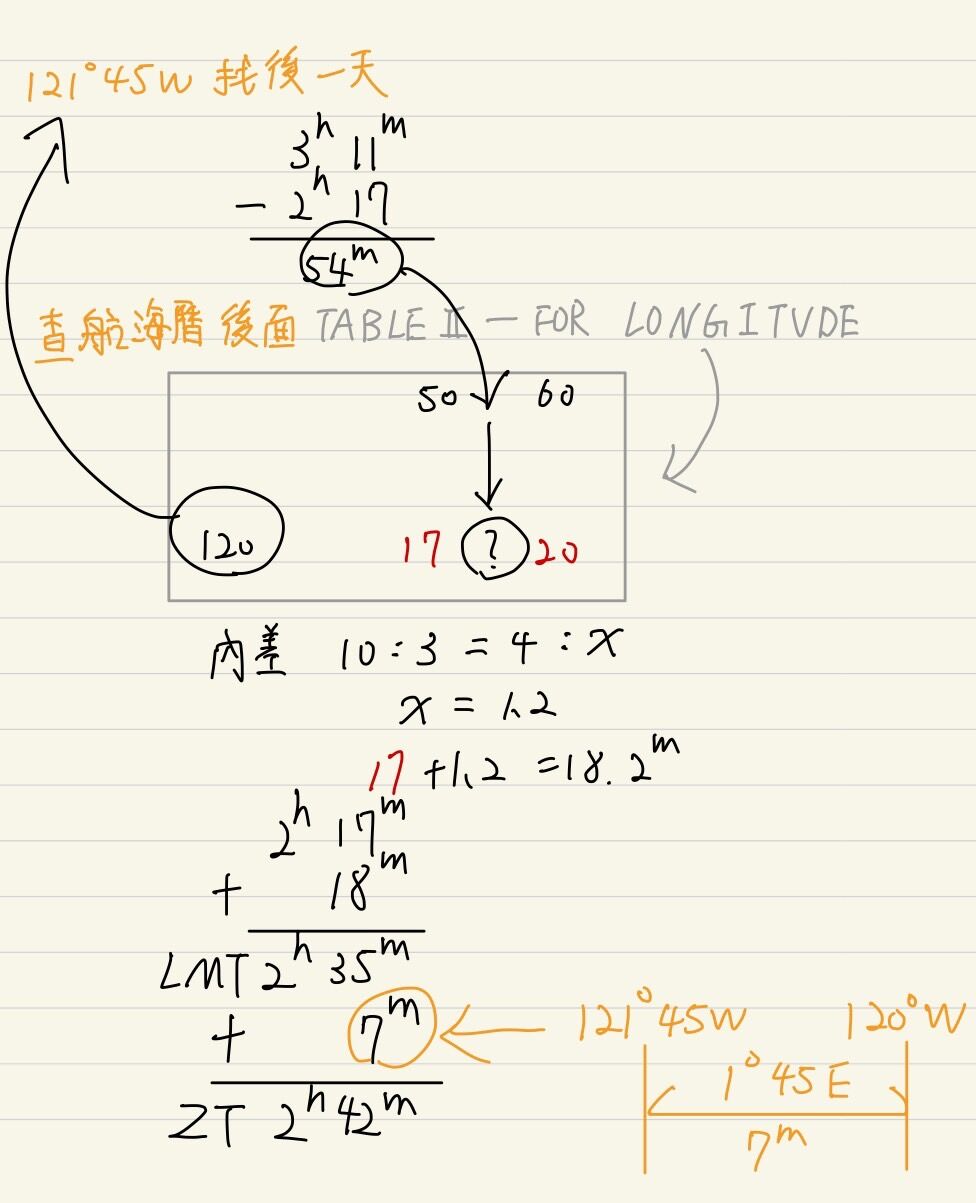 121°45W 找後一天
3ʰ 11ᵐ
- 2ʰ 17
54ᵐ
查航海曆後面 TABLE II - FOR LONGITVDE
50 60
120 17 ? 20
內差 10 : 3 = 4 : x
x = 1.2
17 + 1.2 = 18.2ᵐ
2ʰ 17ᵐ
+ 18ᵐ
LMT 2ʰ 35ᵐ
+ 7ᵐ
ZT 2ʰ 42ᵐ
121°45W 120°W
1°45E
7ᵐ